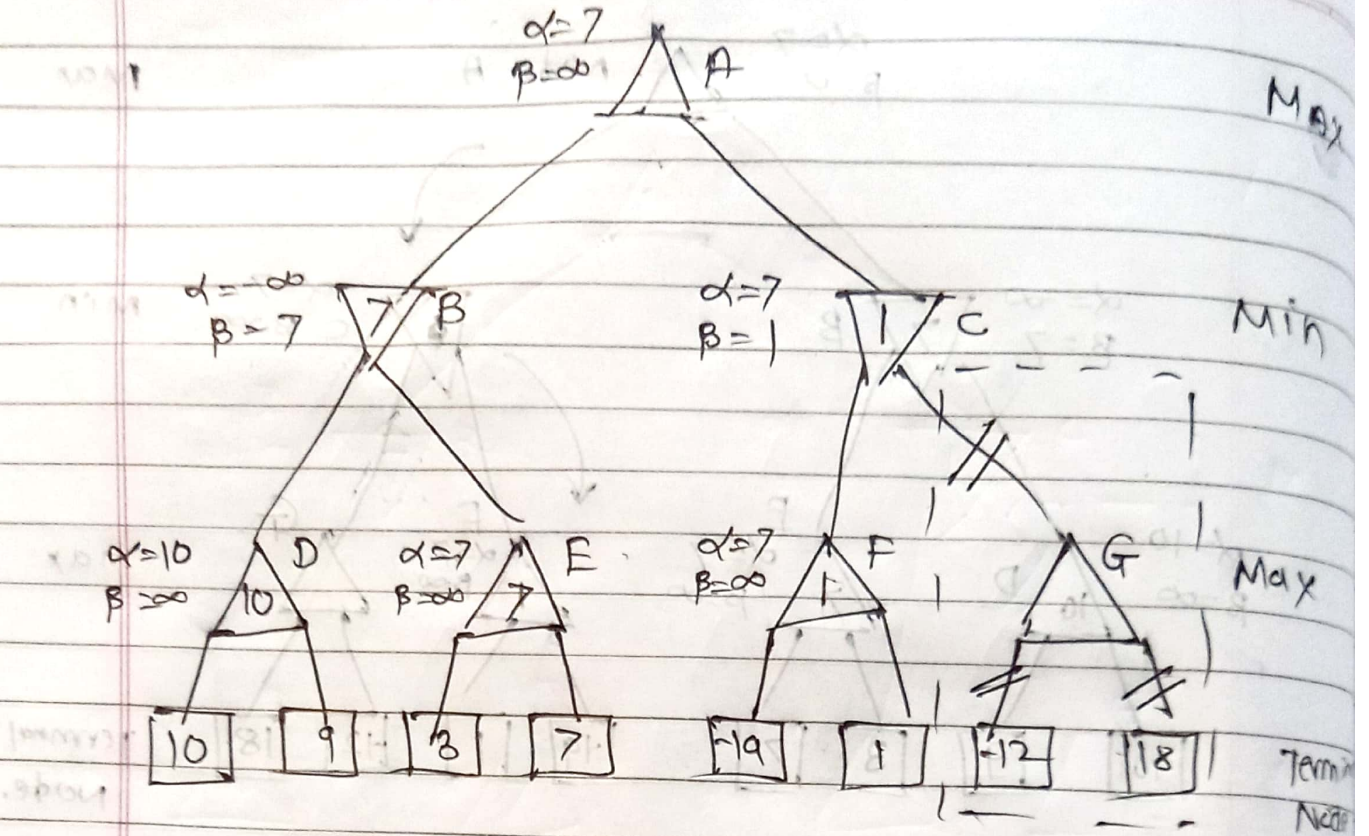 α=7
β=∞ A
Max
α=-∞
β=7 7 B
α=7
β=1 1 C
Min
α=10
β=∞ 10 D
α=7
β=∞ 7 E
α=7
β=∞ 1 F
G
Max
10 9 3 7 -19 1 -12 18